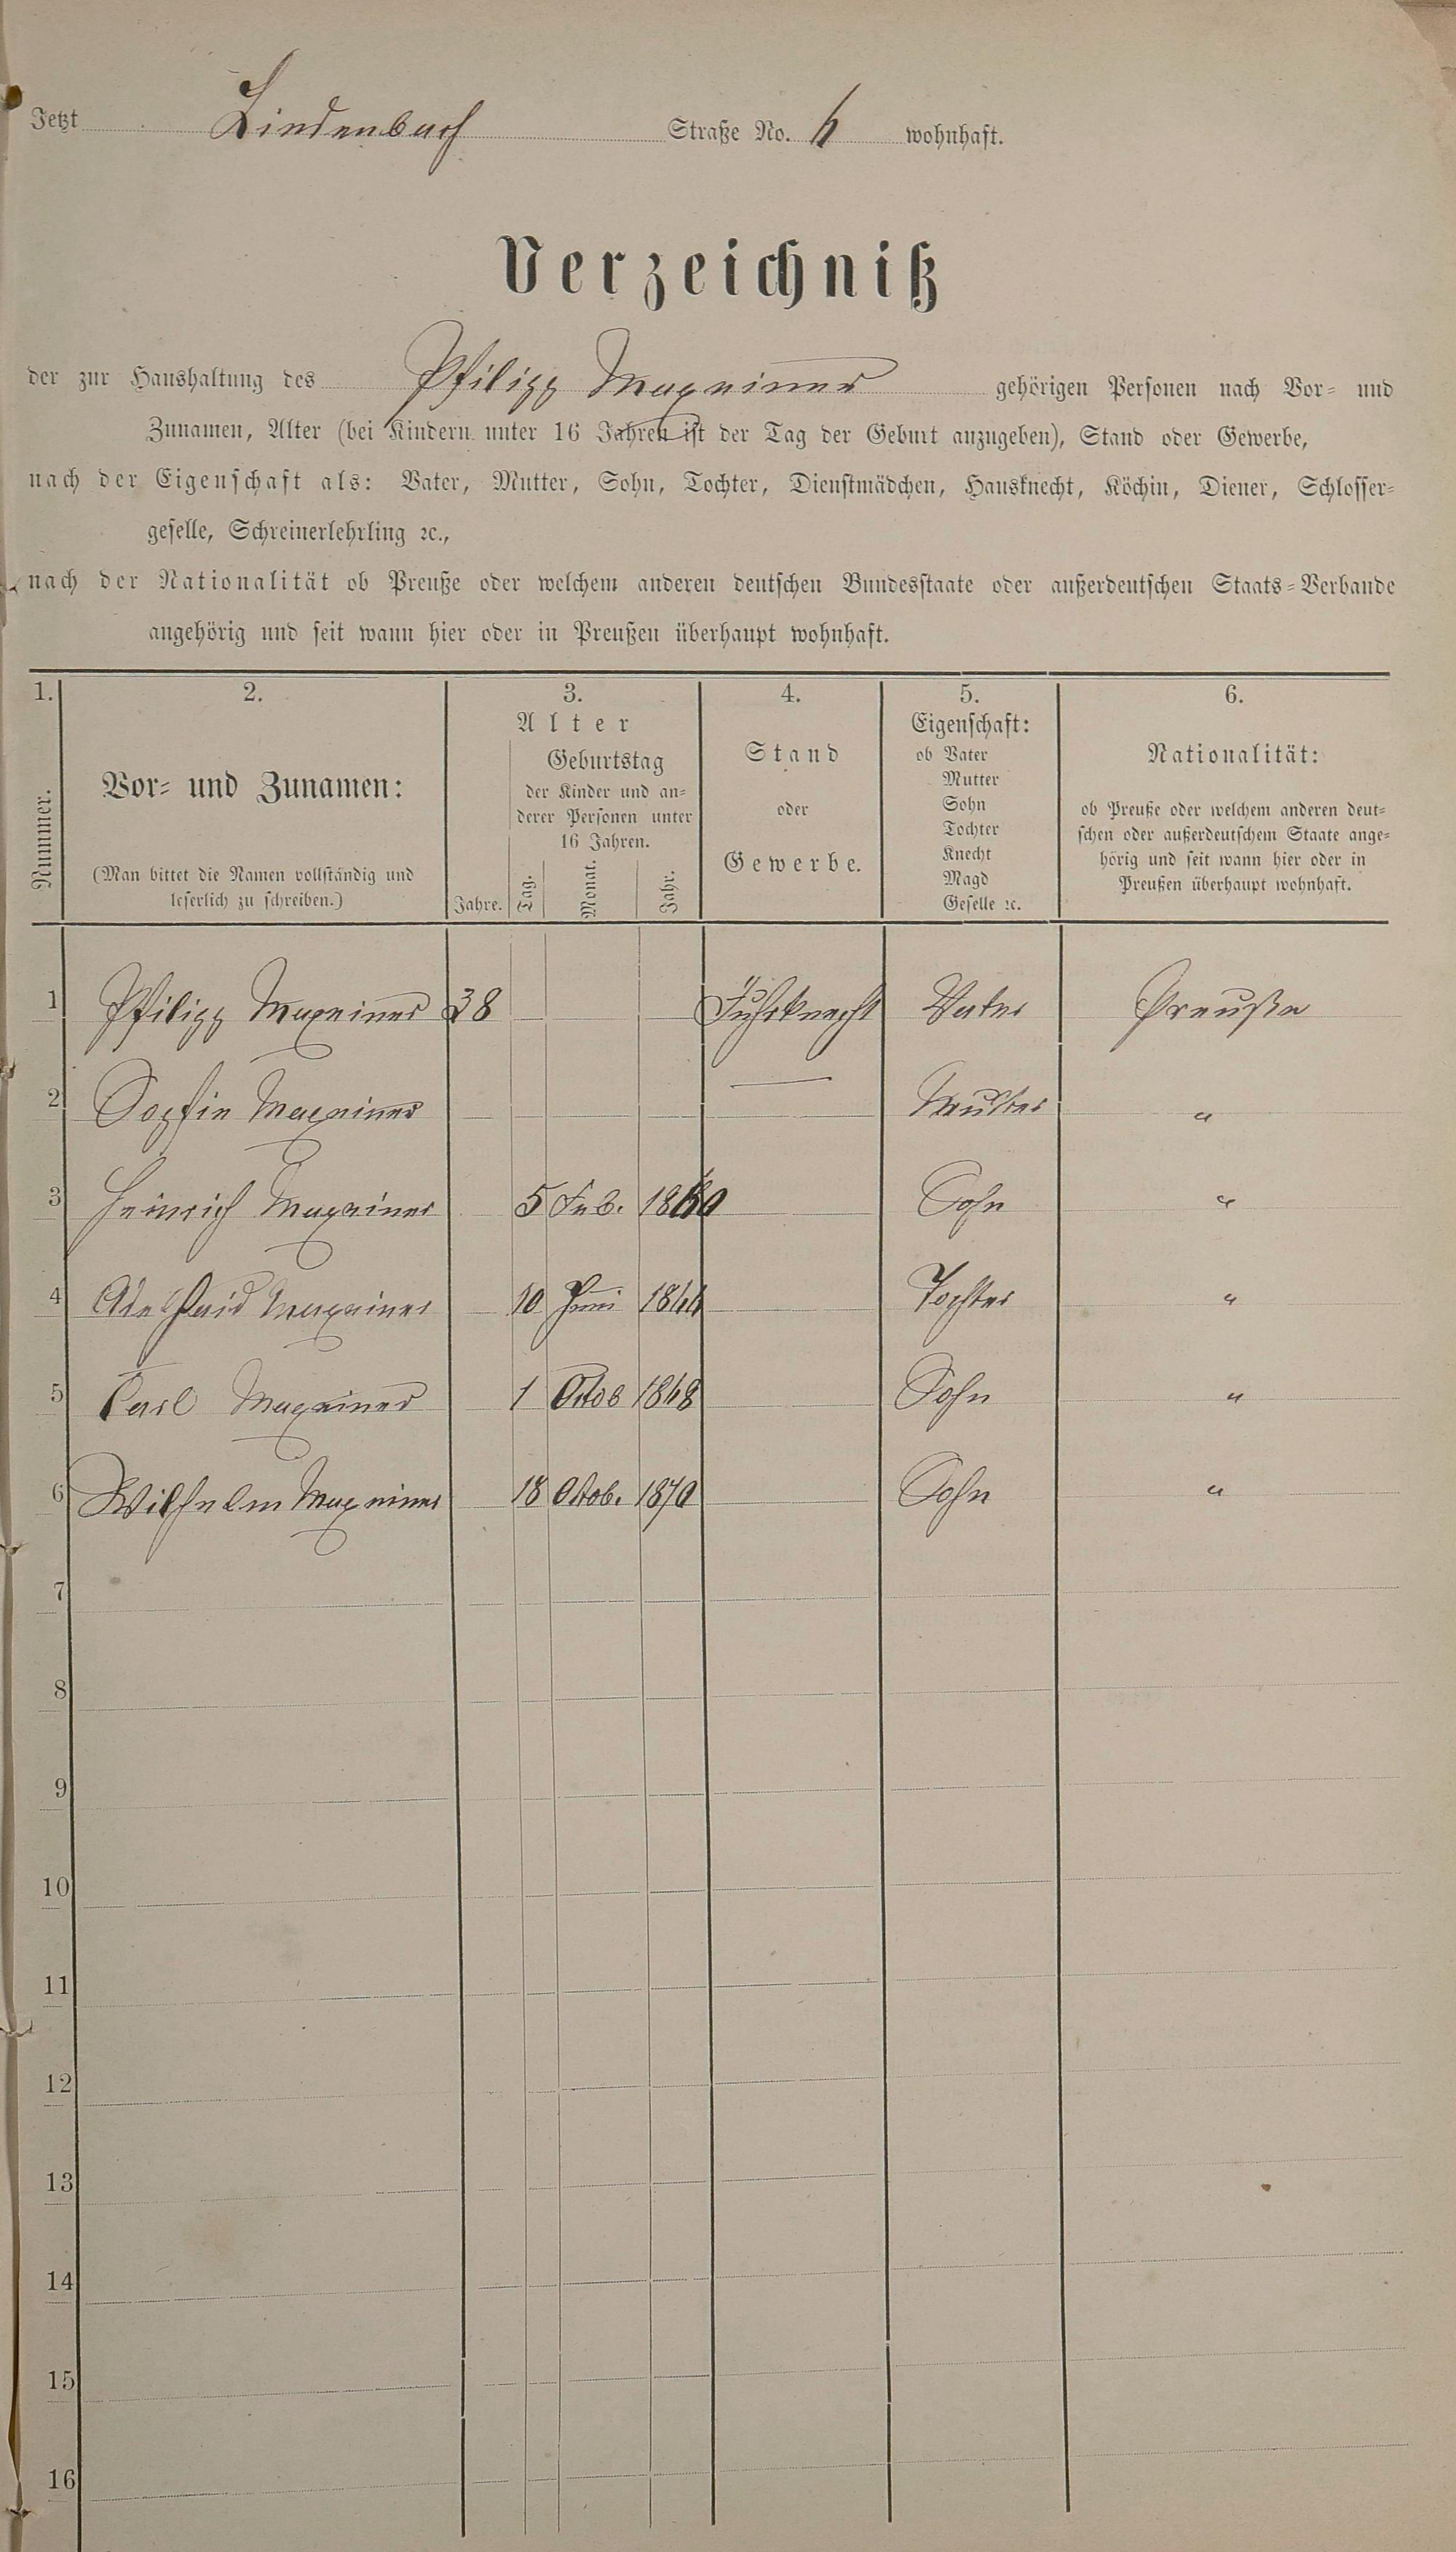 Jetzt Lindenbach Straße No. 6 wohnhaft.
Verzeichniß
der zur Haushaltung des Philipp Maxeiner gehörigen Personen nach Vor- und
Zunamen, Alter (bei Kindern unter 16 Jahren ist der Tag der Geburt anzugeben), Stand oder Gewerbe,
nach der Eigenschaft als: Vater, Mutter, Sohn, Tochter, Dienstmädchen, Hausknecht, Köchin, Diener, Schlosser-
geselle, Schreinerlehrling ꝛc.,
nach der Nationalität ob Preuße oder welchem anderen deutschen Bundesstaate oder außerdeutschen Staats-Verbande
angehörig und seit wann hier oder in Preußen überhaupt wohnhaft.
1. 2. 3. 4. 5. 6.
Nummer.
Vor- und Zunamen:
(Man bittet die Namen vollständig und
leserlich zu schreiben.)
Alter
Jahre.
Geburtstag
der Kinder und an-
derer Personen unter
16 Jahren.
Tag. Monat. Jahr.
Stand
oder
Gewerbe.
Eigenschaft:
ob Vater
Mutter
Sohn
Tochter
Knecht
Magd
Geselle ꝛc.
Nationalität:
ob Preuße oder welchem anderen deut-
schen oder außerdeutschem Staate ange-
hörig und seit wann hier oder in
Preußen überhaupt wohnhaft.
1 Philipp Maxeiner 38 Fuhrknecht Vater Preuße
2 Sophie Maxeiner — Mutter "
3 Heinrich Maxeiner 5 Feb. Sohn "
4 Adelhaid Maxeiner 10 Juni 1866 Tochter "
5 Carl Maxeiner 1 Octob 1868 Sohn "
6 Wilhelm Maxeiner 18 Octob. 1870 Sohn "
7
8
9
10
11
12
13
14
15
16